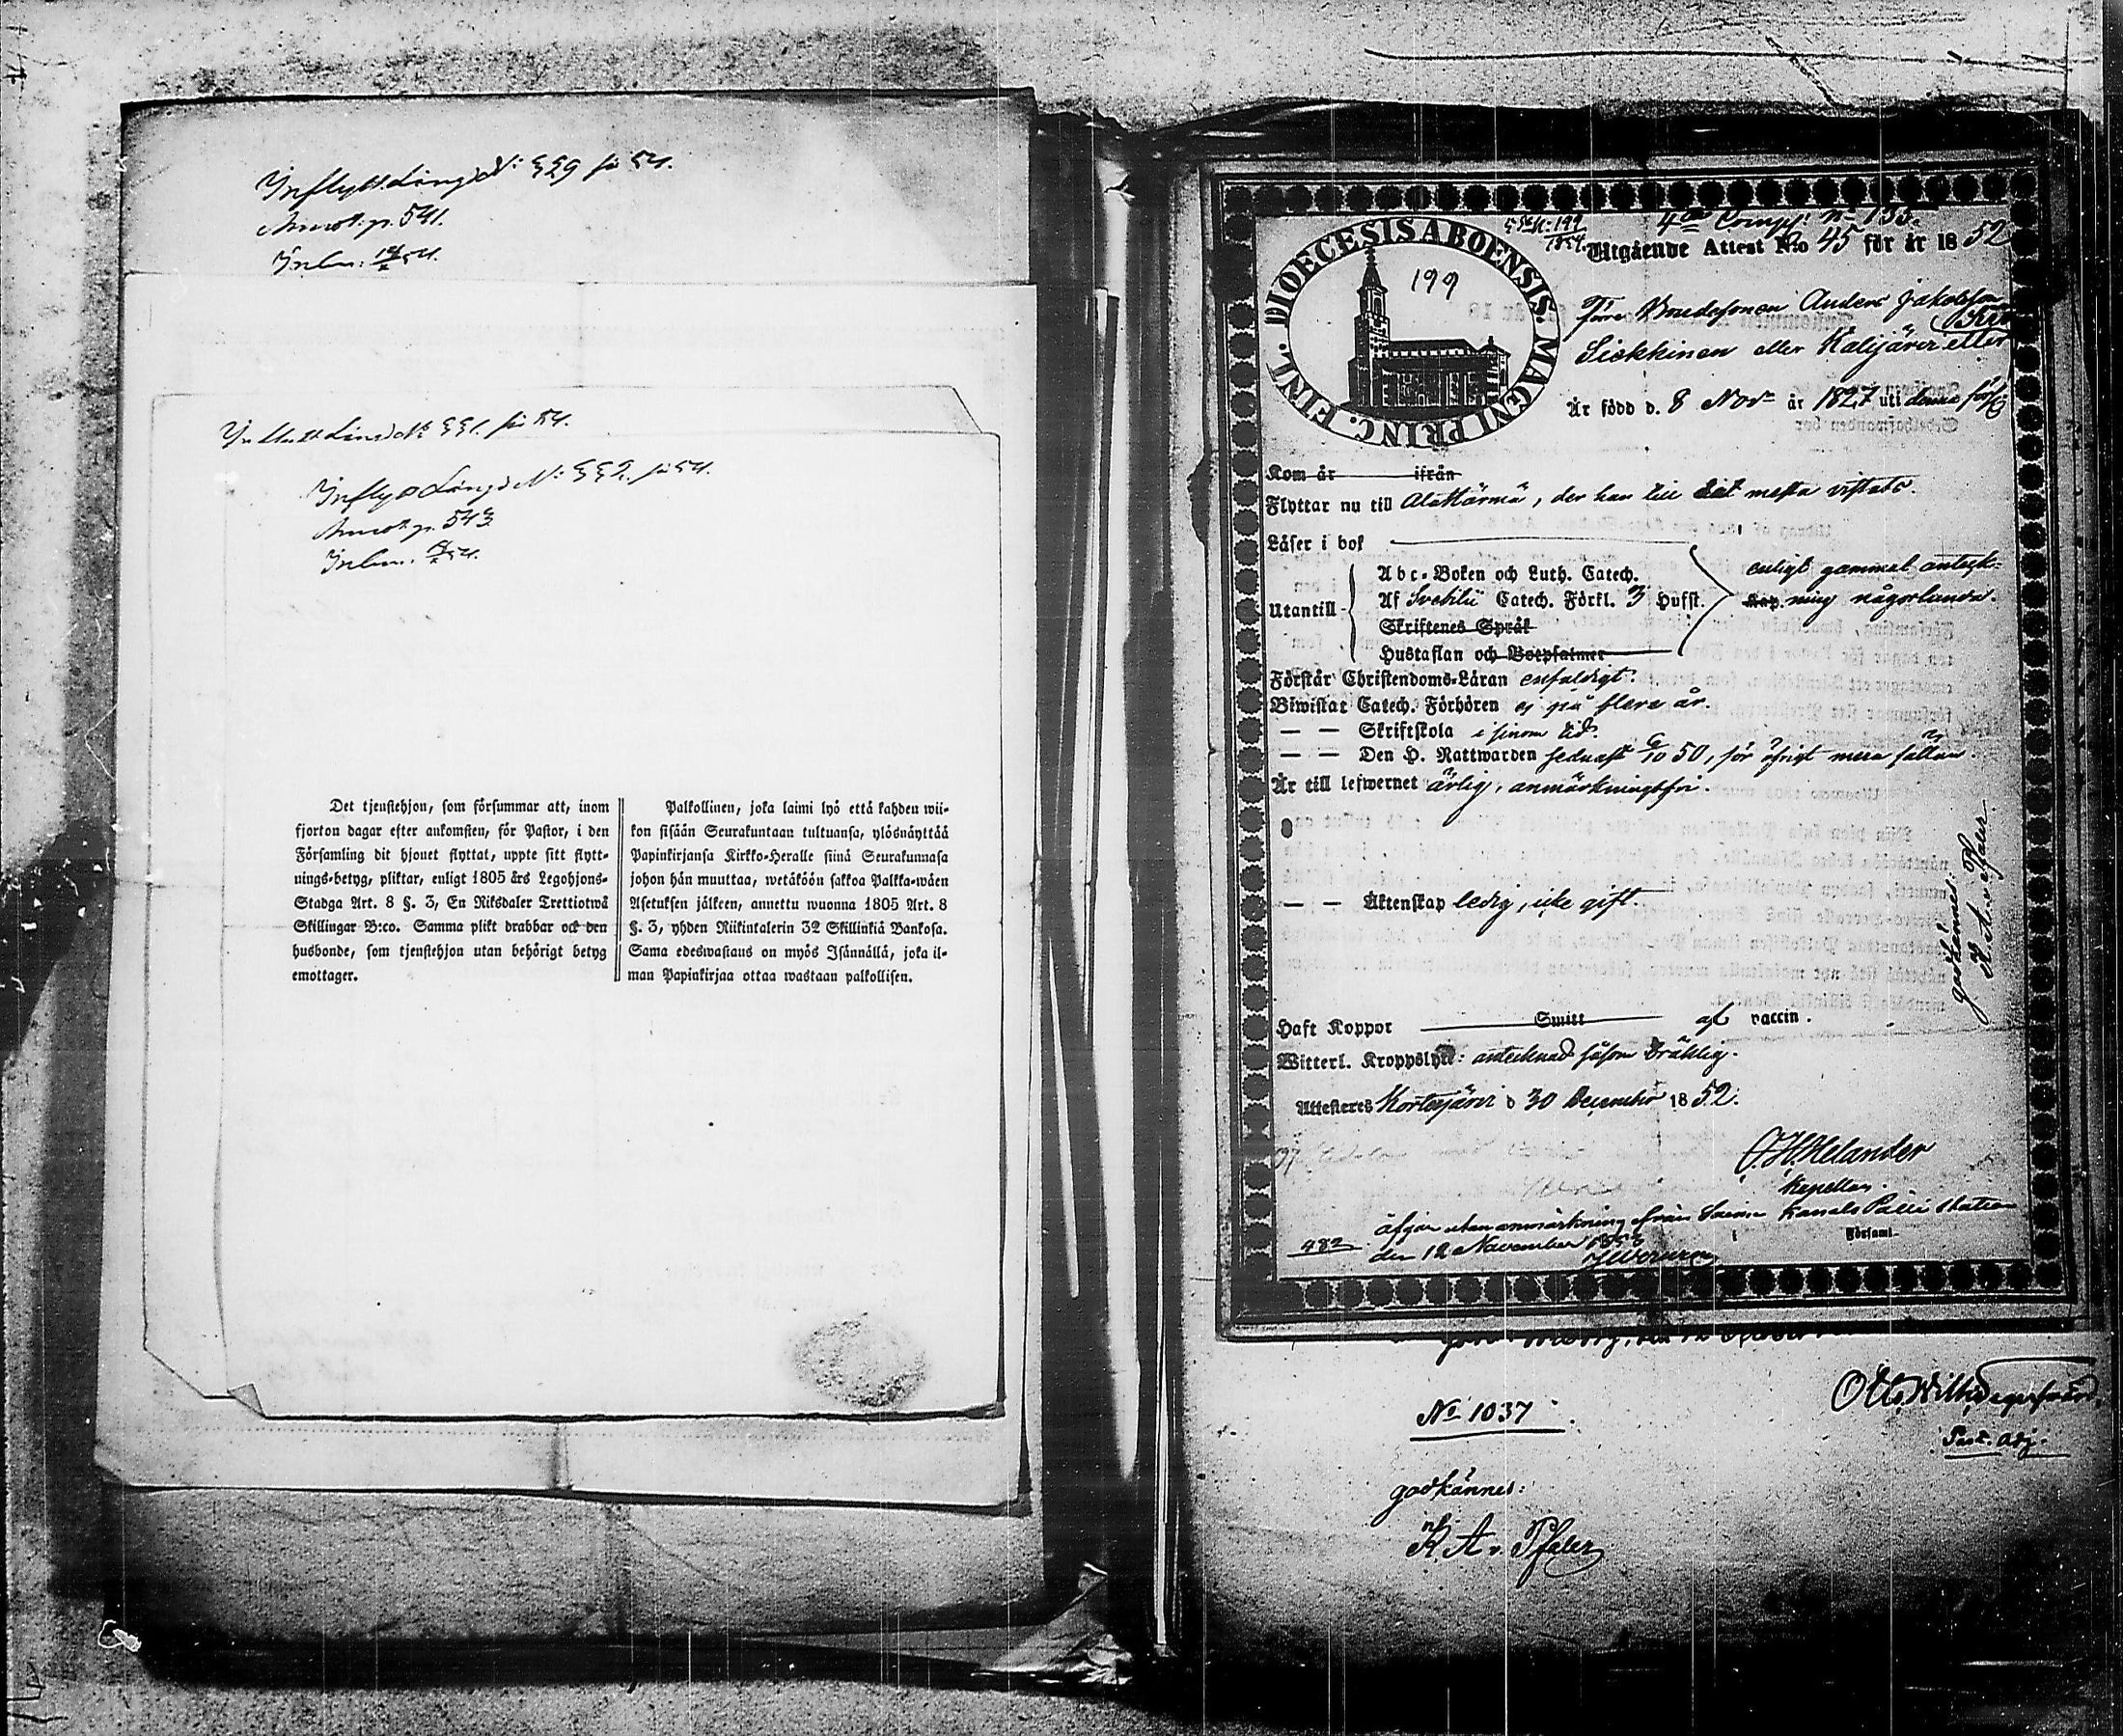 InflyttLängd N: 529 för 54.
Annot. p. 541.
N: 551. för 54.
Inflytt Längd N: 552. för 54.
Annot. p. 543
Det tjenstehjon, som försummar att, inom
fjorton dagar efter ankomsten, för Pastor, i den
Församling dit hjonet flyttat, uppte sitt flytt-
nings-betyg, pliktar, enligt 1805 års Legohjons-
Stadga Art. 8 §. 3, En Riksdaler Trettiotwå
Skillingar B:co. Samma plikt drabbar ock den
husbonde, som tjenstehjon utan behörigt betyg
emottager.
Palkollinen, joka laimi lyö että kahden wii-
kon sisään Seurakuntaan tultuansa, ylösnäyttää
Papinkirjansa Kirkko-Heralle siinä Seurakunnasa
johon hän muuttaa, wetäköön sakkoa Palkka-wäen
Asetuksen jälkeen, annettu wuonna 1805 Art. 8
§. 3, yhden Riikintalerin 32 Skillinkiä Bankosa.
Sama edeswastaus on myös Isännällä, joka il-
man Papinkirjaa ottaa wastaan palkollisen.
DIOECESIS ABOENSIS. MAGNI PRINC. FINL.
199
4de Comp: N= 155.
Utgående Attest No 45 för år 1852
Förre Anders Jakobsson
Siekkinen eller Kalijärvi eller
Är född d. 8 Novr år 1827 uti denna förs
Kom år ifrån
Flyttar nu till AlaHärmä, der han till det mesta vistats.
Läser i bok
Utantill
Abc-Boken och Luth. Catech.
Af Svebilii Catech. Förkl. 3 Hufst.
Skriftenes Språk
Hustaflan och Botpsalmer
enligt gammal anteck-
Kap. ning någorlunda.
Förstår Christendoms-Läran enfaldigt.
Biwistat Catech. Förhören ej på flere år.
— — Skriftskola i sinom tid.
— — Den H. Nattwarden sednast 6/10 50, för öfrigt mera sällan
Är till lefwernet ärlig, anmärkningsfri.
— — Äktenskap ledig, icke gift.
godkännes:
K. A. v. Pfaler
Haft Koppor Smitt af vaccin.
Witterl. Kroppslyte: antecknad såsom bräklig.
Attesteras Kortesjärvi d 30 December 1852.
O. H. Helander
Kapellan.
afgår utan anmärkning från Saima Kanals Pälli station
482 den 12 November 1853
i Församl.
Otto Wilh:
Past. adj.
No 1037
godkännes:
K. A. v. Pfaler